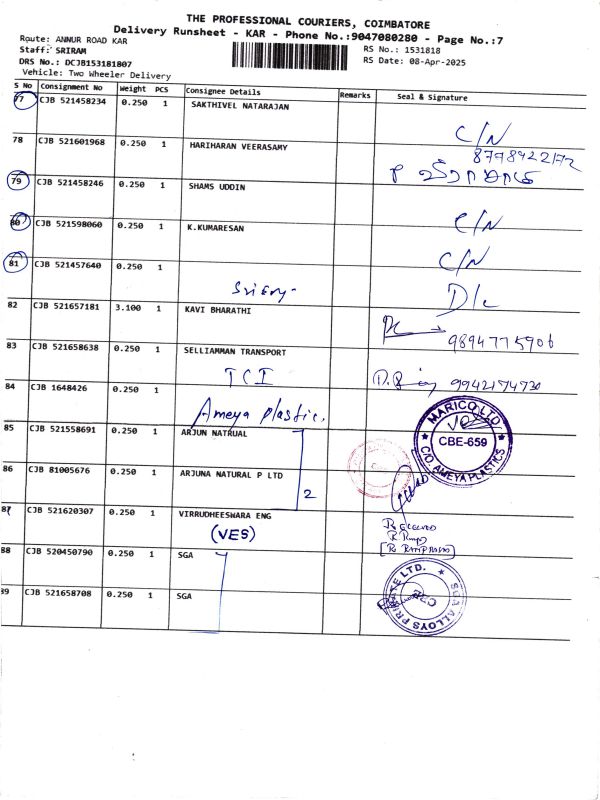 THE PROFESSIONAL COURIERS, COIMBATORE
Delivery Runsheet - KAR - Phone No.:9047080280 - Page No.:7
Route: ANNUR ROAD KAR
Staff: SRIRAM
RS No.: 1531818
DRS No.: DCJB153181807
RS Date: 08-Apr-2025
Vehicle: Two Wheeler Delivery
S No Consignment No Weight PCS Consignee Details Remarks Seal & Signature
77 CJB 521458234 0.250 1 SAKTHIVEL NATARAJAN C/N
78 CJB 521601968 0.250 1 HARIHARAN VEERASAMY
79 CJB 521458246 0.250 1 SHAMS UDDIN C/N
80 CJB 521598060 0.250 1 K.KUMARESAN C/N
81 CJB 521457640 0.250 1 D/L
82 CJB 521657181 3.100 1 KAVI BHARATHI 9894775906
83 CJB 521658638 0.250 1 SELLIAMMAN TRANSPORT
TCI 9942174730
84 CJB 1648426 0.250 1
Ameya plastic.
MARICO LTD
CBE-659
C/O. AMEYA PLASTICS
85 CJB 521558691 0.250 1 ARJUN NATRUAL
86 CJB 81005676 0.250 1 ARJUNA NATURAL P LTD
2
87 CJB 521620307 0.250 1 VIRRUDHEESWARA ENG
(VES)
88 CJB 520450790 0.250 1 SGA
89 CJB 521658708 0.250 1 SGA
SGA ALLOYS PRIVATE LTD.
CBE